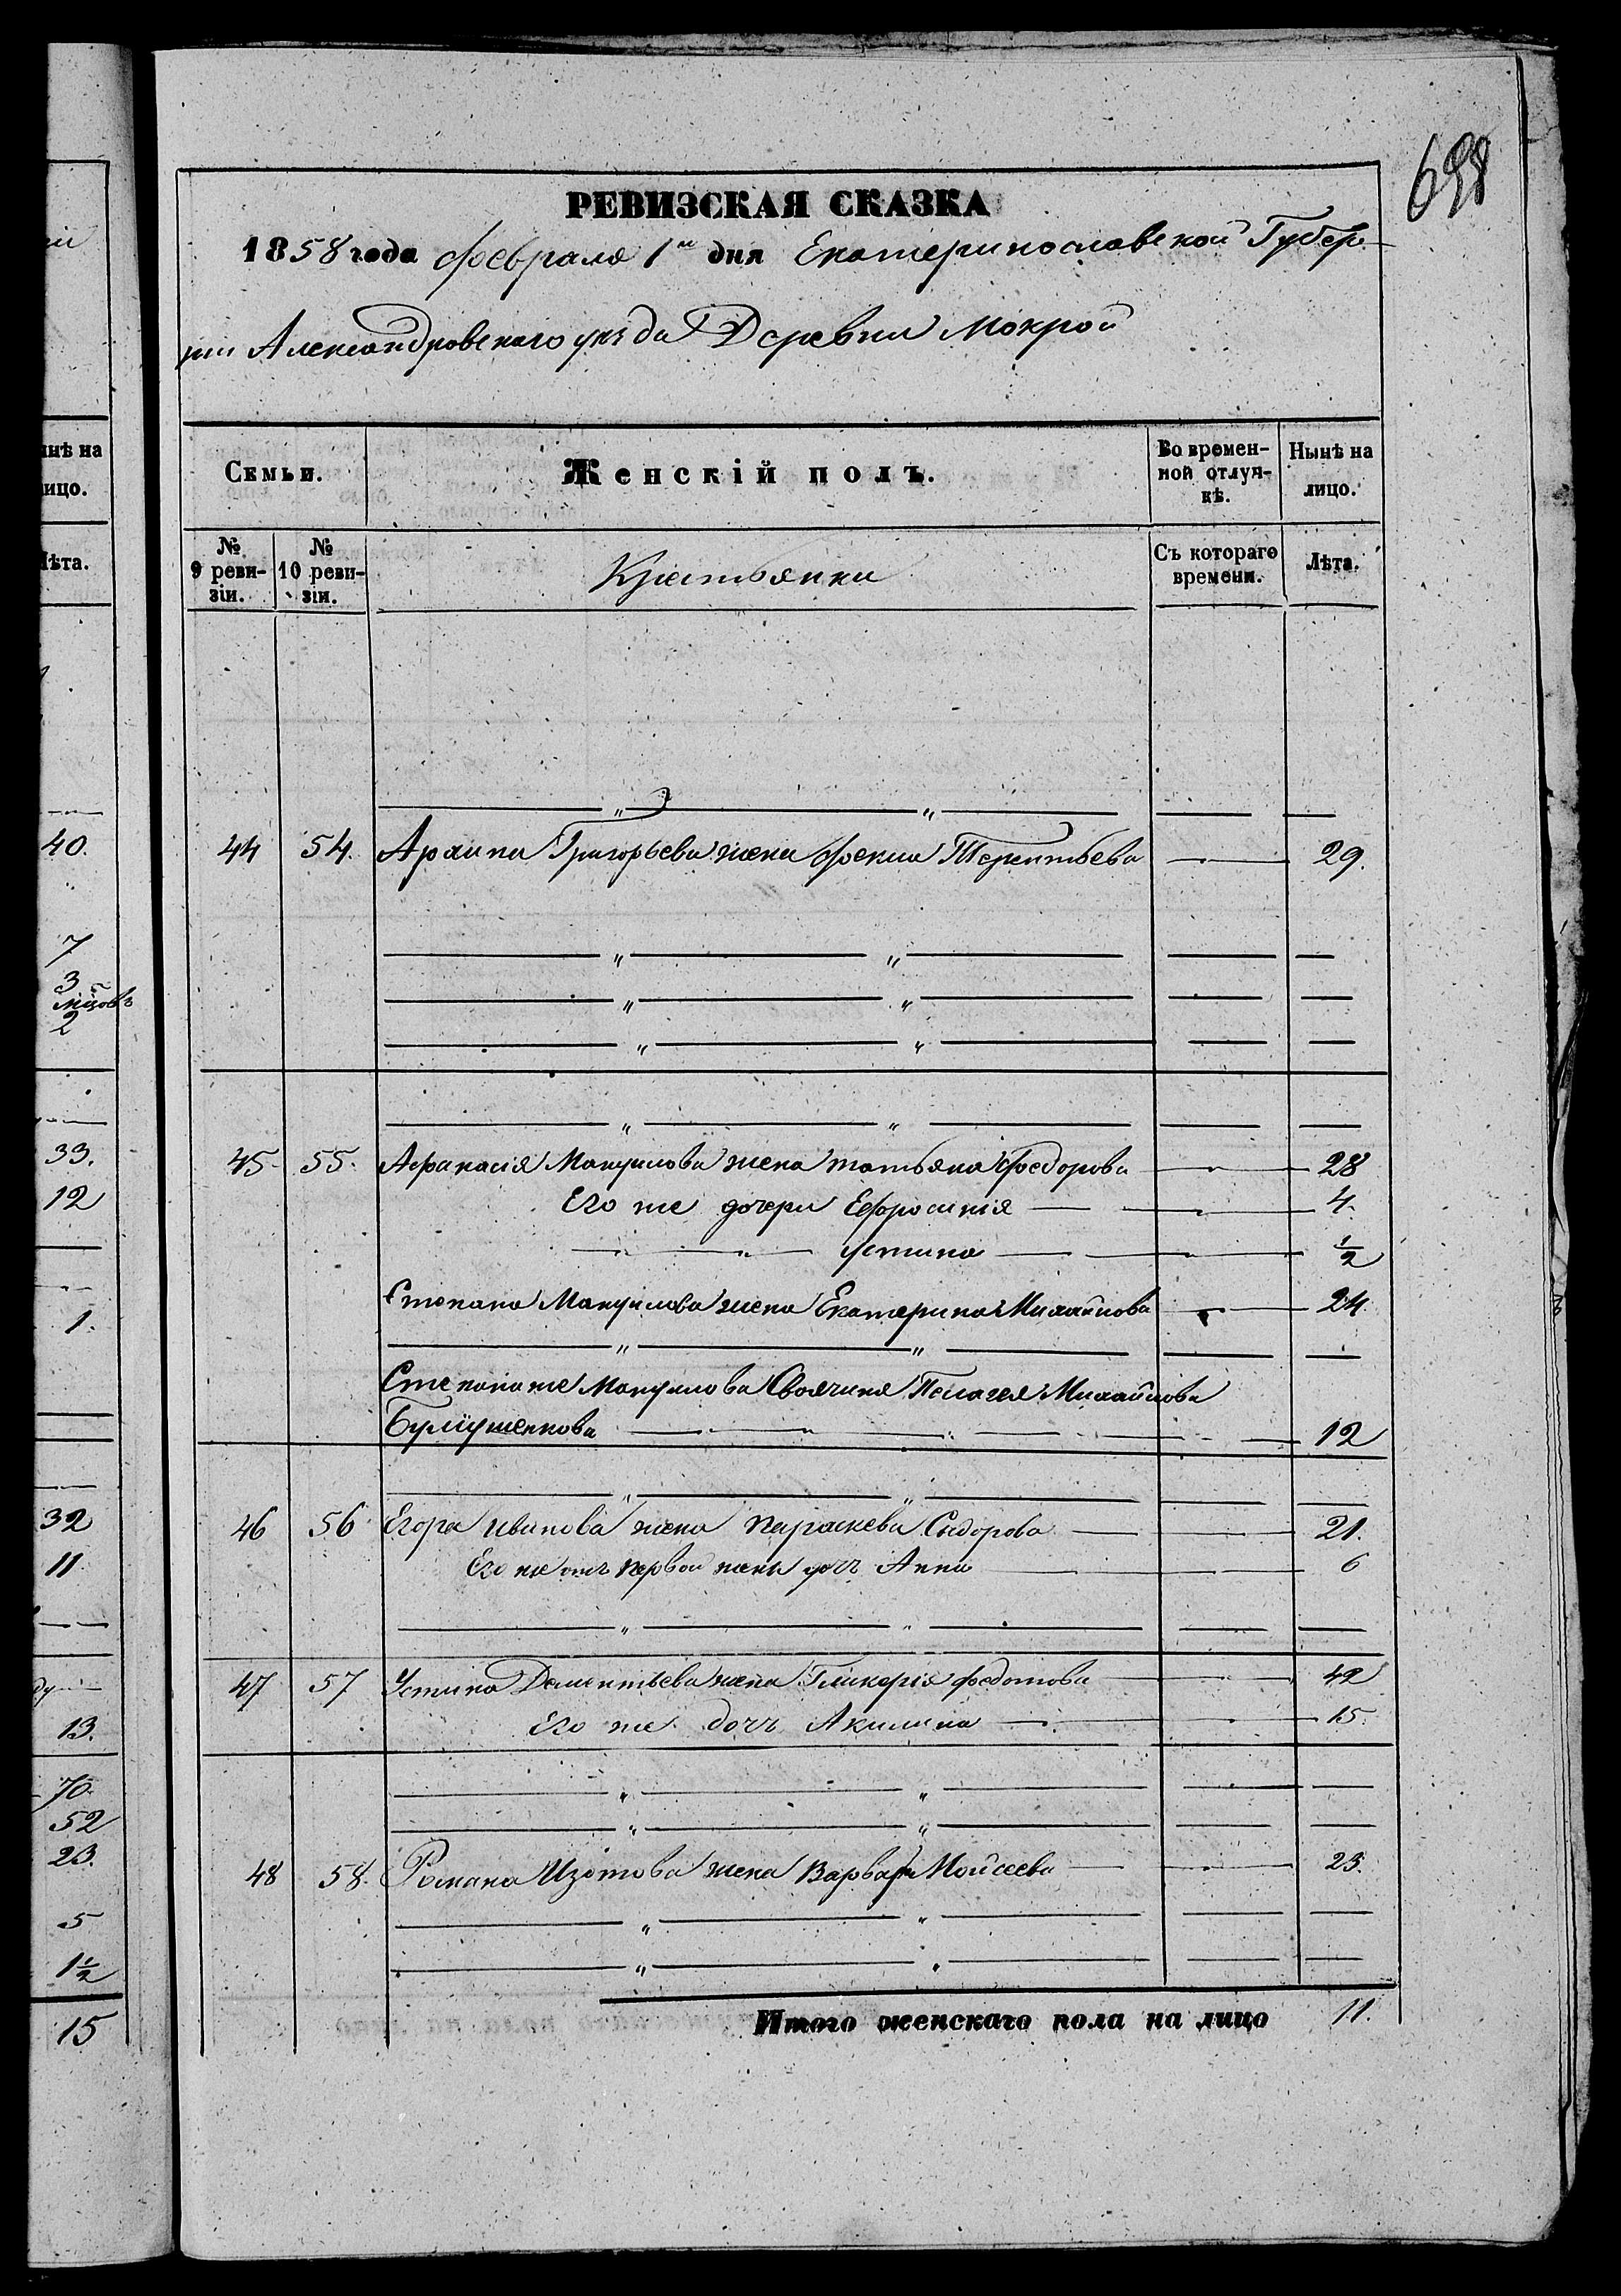 698
РЕВИЗСКАЯ СКАЗКА
1858 года февраля 1го дня Екатеринославской Губер-
нии Александровского уѣзда Деревни Мокрой
Семьи.
Женскій полъ.
Во времен-
ной отлуч-
кѣ.
Нынѣ на
лицо.
№
9 реви-
зіи.
№
10 реви-
зіи.
Крестьянки
Съ котораго
времени.
Лѣта.
44 54. Архипа Григорьева жена Фекла Терентьева 29.
45 55. Афанасія Мануилова жена Татьяна Федорова 28
Его же дочери Ефросинія 4.
Устина ½
Степана Мануилова жена Екатерина Михайлова 24
Степана же Мануилова Своячиня Пелагея Михайлова
12
46 56 Егора Иванова жена Параскева Сидорова 21.
Его же отъ первой жены дочь Анна 6
47 57 Устина Дементьева жена Гликерія Федотова 42
Его же дочь Акилина 15.
48 58. Романа Изотова жена Варвара Мойсеева 23.
Итого женскаго пола на лицо 11.
нѣ на
ицо.
ѣта.
40.
7
3
мцовъ
2
33.
12
1.
32
11
13.
70.
52
23.
5
1½
15